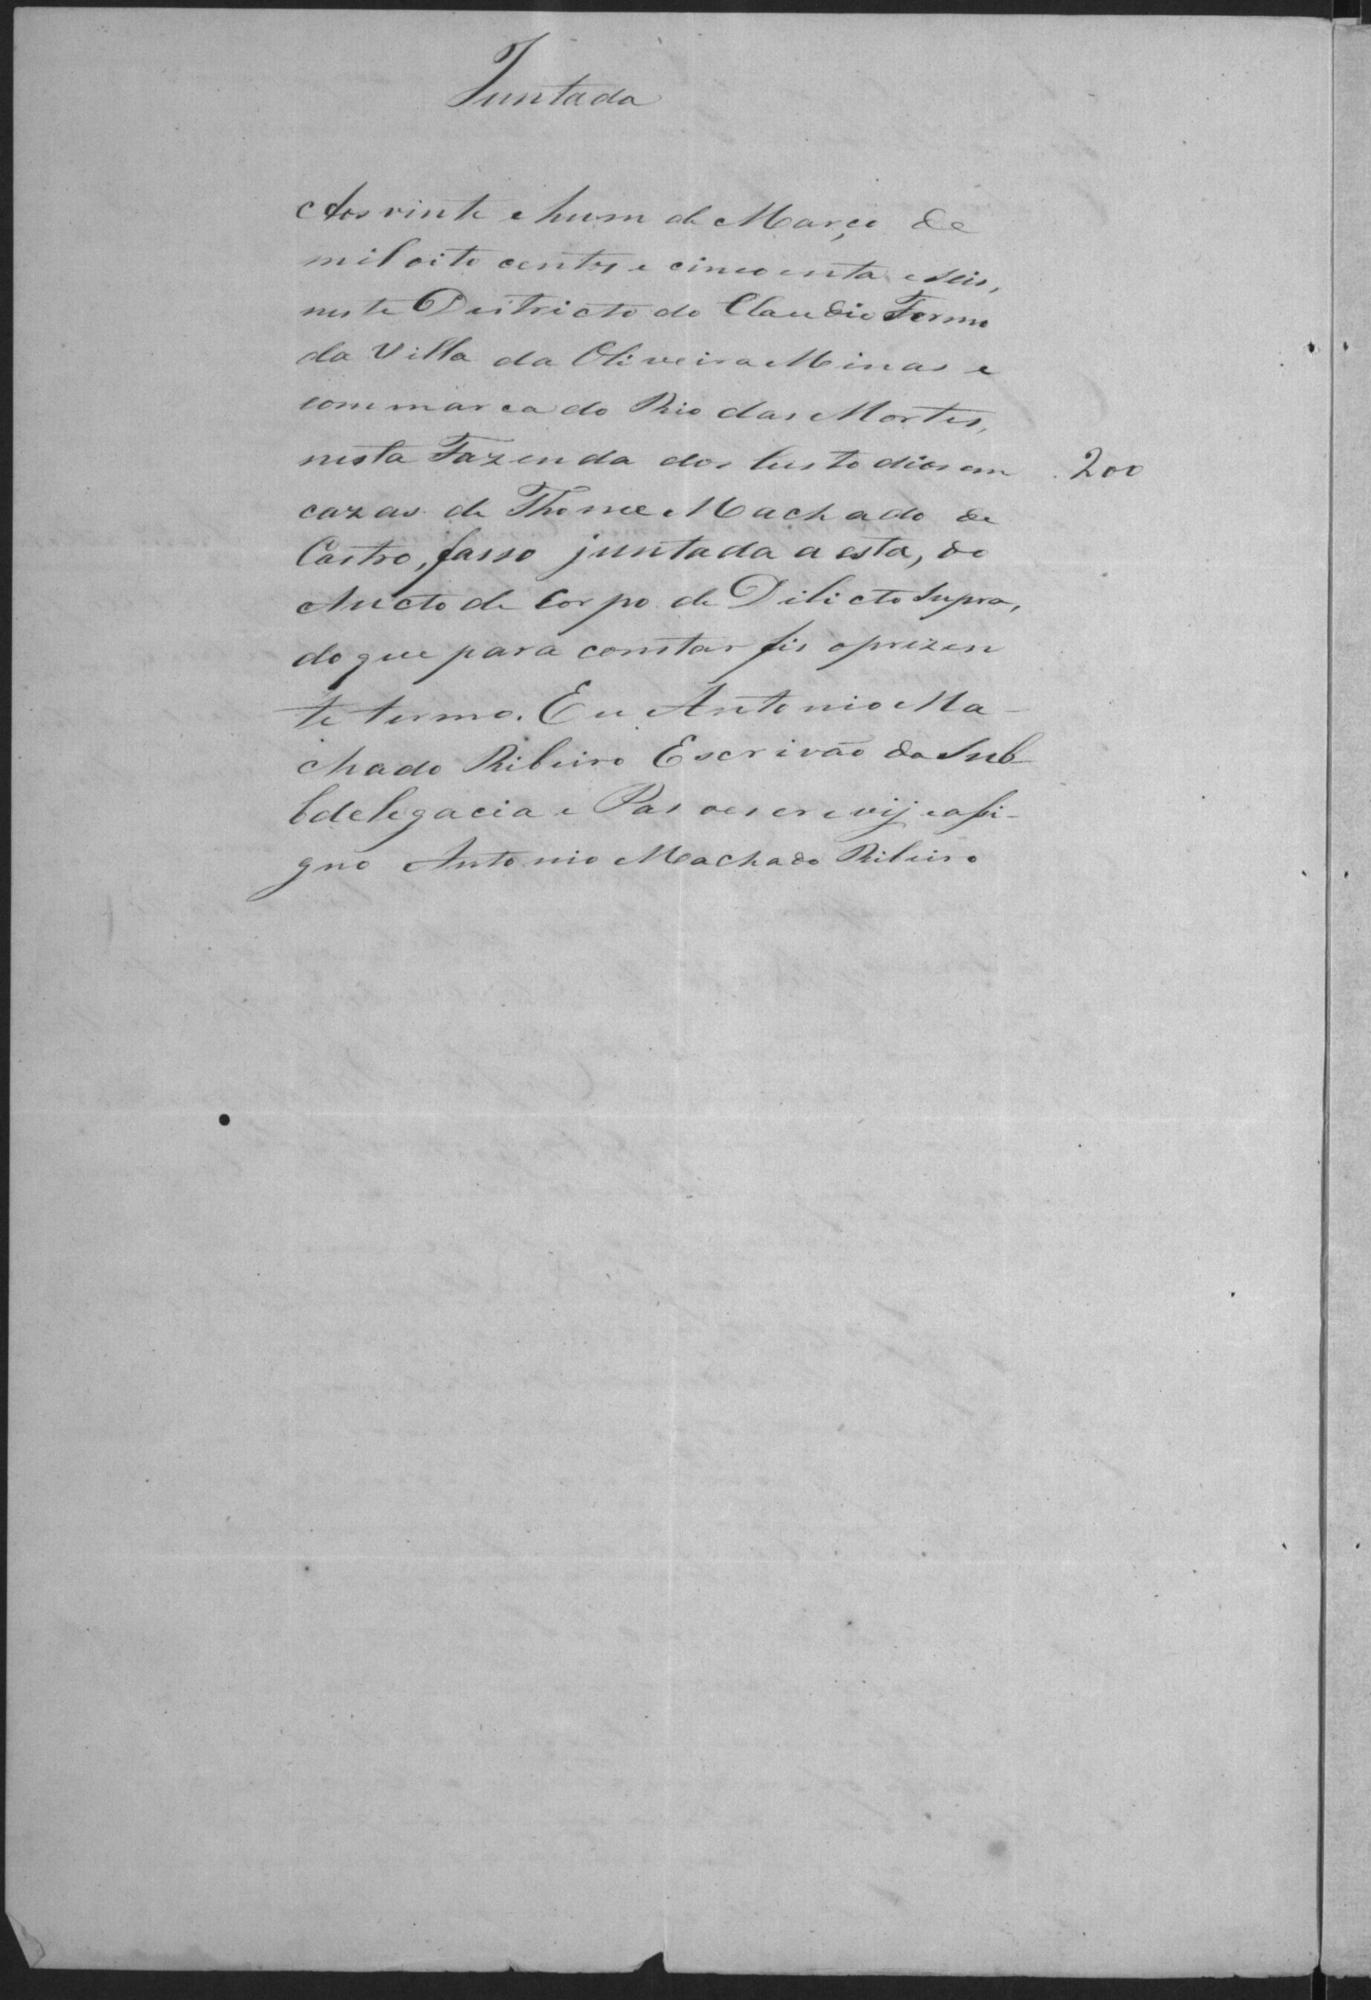 Juntada
Aos vinte e hum de Março de
mil oito centos e cincoenta e seis,
neste Destricto do Claudio Termo
da Villa da Oliveira Minas e
commarca do Rio das Mortes,
nesta Fazenda dos Custodios em 200
cazas de Thome Machado de
Castro, fasso juntada a esta, do
Aucto de Corpo de Dilicto supra,
do que para constar fis o prezen
te termo. Eu Antonio Ma-
chado Ribeiro Escrivão da Sub-
bdelegacia e Pas o escrevij e assi-
gno Antonio Machado Ribeiro